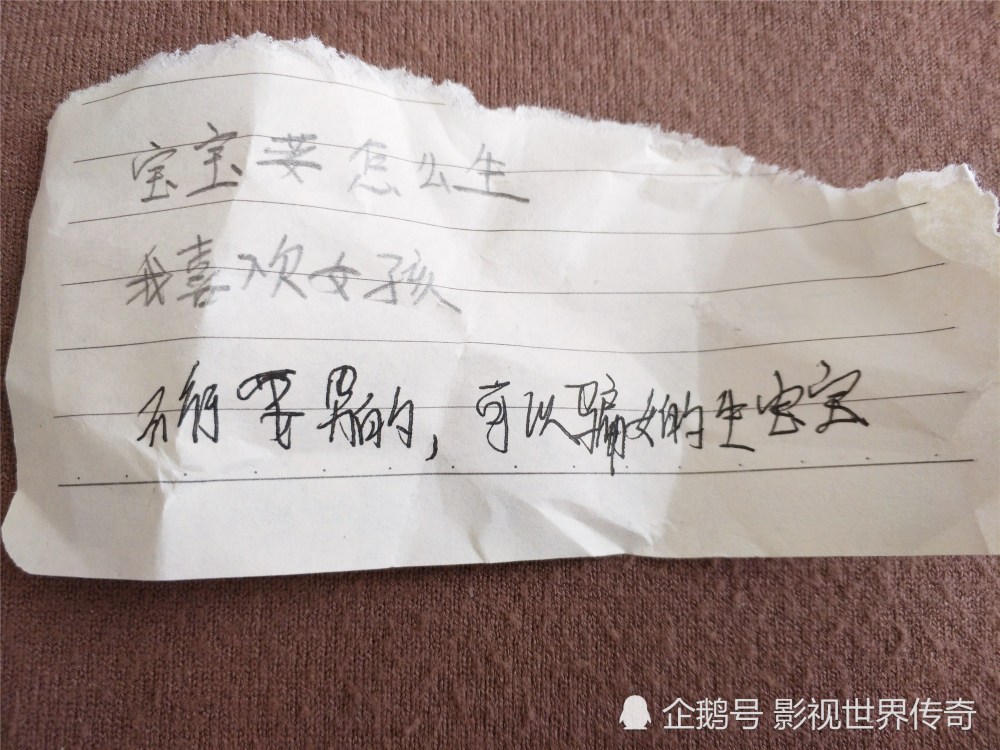 宝宝要怎么生
我喜欢女孩
不行要男的,可以骗女的生宝宝
企鹅号 影视世界传奇